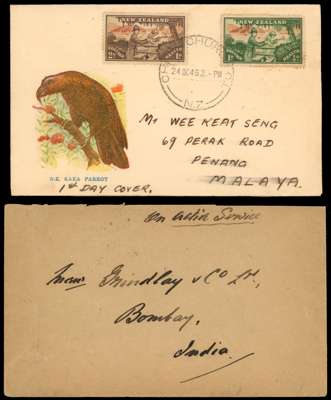 NEW ZEALAND NEW ZEALAND
CHRISTCHURCH
24 OC 46 2 - PM
N.Z.
Mr WEE KEAT SENG
69 PERAK ROAD
PENANG
MALAYA.
N.Z. KAKA PARROT
1st DAY COVER.
On Active Service
Messrs Grindlay & Co Ld,
Bombay,
India.